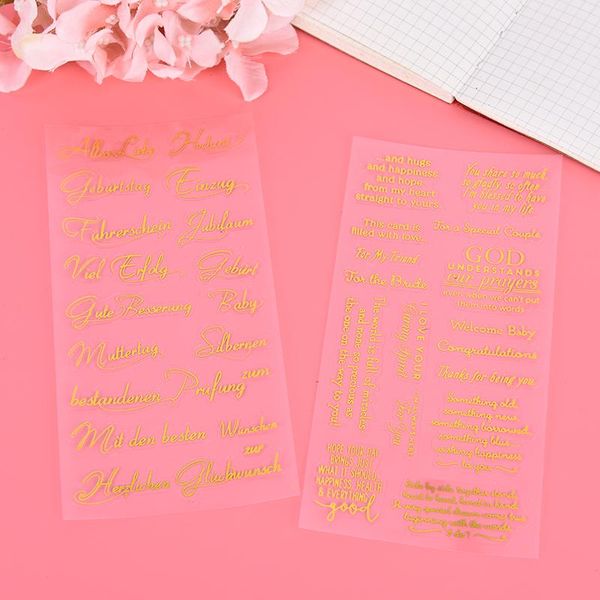 Alles Liebe Hochzeit
Geburtstag Einzug
Führerschein Jubiläum
Viel Erfolg Geburt
Gute Besserung Baby
Muttertag Silbernen
bestandenen Prüfung zum
Mit den besten Wünschen
zur
Herzlichen Glückwunsch
...and hugs
and happiness
and hope
from my heart
straight to yours.
You share so much
so gladly so often
I'm blessed to have
you in my life.
This card is
filled with love...
For a Special Couple
For My Friend
For the Bride
GOD
UNDERSTANDS
our prayers
even when we can't put
them into words
The world is full of miracles
and none so precious as
the one on the way to you!
I LOVE YOUR
Welcome Baby
Congratulations
Thanks for being you.
Something old,
something new,
something borrowed,
something blue...
wishing happiness
to you
HOPE YOUR DAY
BRINGS JUST
WHAT IT SHOULD
HAPPINESS, HEALTH
& EVERYTHING
good
Side by side, together stand,
hand in hand,
beginning with the words
I do!